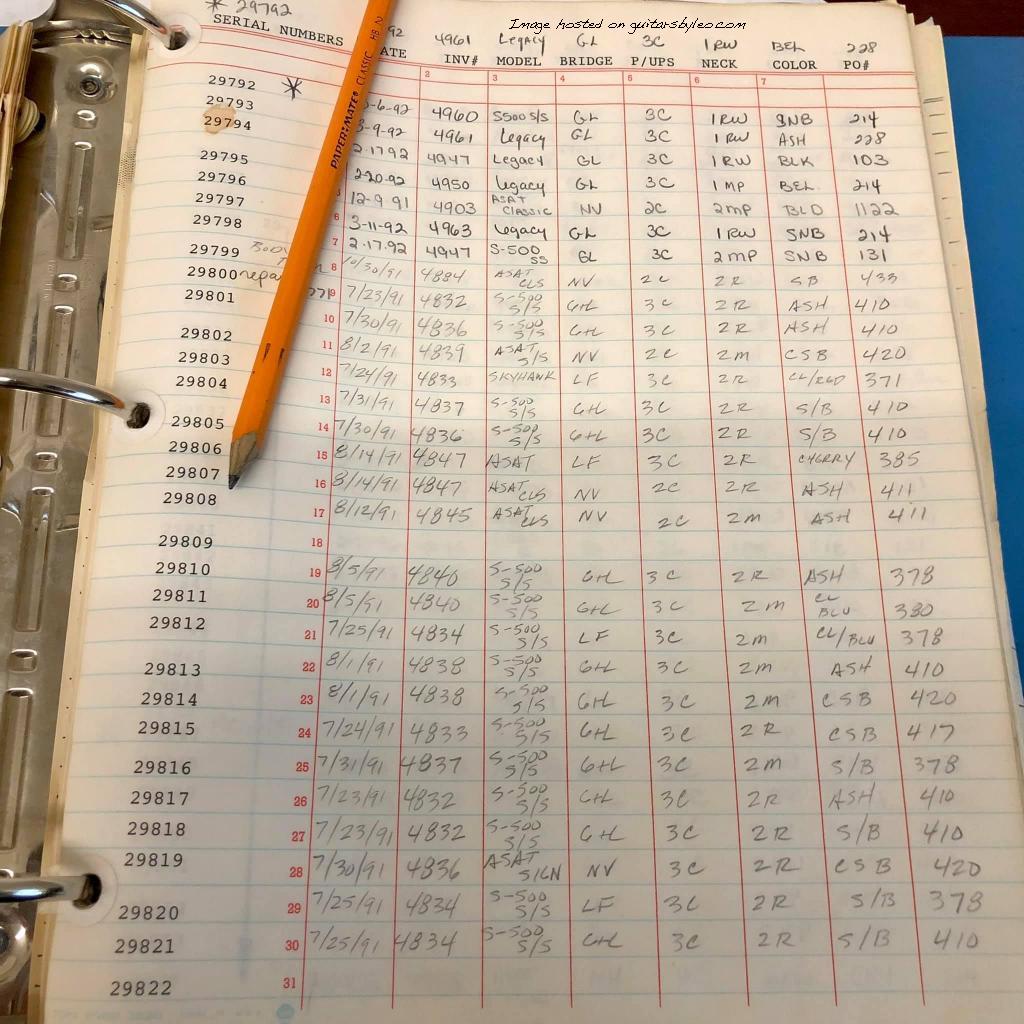 * 29792 92 4961 Legacy GL 3C 1RW BEL 228
Image hosted on guitarsbyleo.com
SERIAL NUMBERS ATE INV# MODEL BRIDGE P/UPS NECK COLOR PO#
2 3 4 5 6 7
29792 * 3-6-92 4960 S500 S/S GL 3C 1RW SNB 214
29793 3-9-92 4961 Legacy GL 3C 1RW ASH 228
29794 2-17-92 4947 Legacy GL 3C 1RW BLK 103
29795 2-20-92 4950 Legacy GL 3C 1MP BEL 214
29796 12-9-91 4903 ASAT CLASSIC NV 2C 2MP BLD 1122
29797 6 3-11-92 4963 Legacy GL 3C 1RW SNB 214
29798 7 2-17-92 4947 S-500 SS GL 3C 2MP SNB 131
29799 Body 8 10/30/91 4884 ASAT CLS NV 2C 2R SB 433
29800 9 7/23/91 4832 S-500 S/S G+L 3C 2R ASH 410
29801 10 7/30/91 4836 S-500 S/S G+L 3C 2R ASH 410
29802 11 8/2/91 4839 ASAT S/S NV 2C 2M CSB 420
29803 12 7/24/91 4833 SKYHAWK LF 3C 2R CL/RED 371
29804 13 7/31/91 4837 S-500 S/S G+L 3C 2R S/B 410
29805 14 7/30/91 4836 S-500 S/S G+L 3C 2R S/B 410
29806 15 8/14/91 4847 ASAT LF 3C 2R CHERRY 385
29807 16 8/14/91 4847 ASAT CLS NV 2C 2R ASH 411
29808 17 8/12/91 4845 ASAT CLS NV 2C 2M ASH 411
29809 18
29810 19 8/5/91 4840 S-500 S/S G+L 3C 2R ASH 378
29811 20 8/5/91 4840 S-500 S/S G+L 3C 2M CL BLU 380
29812 21 7/25/91 4834 S-500 S/S LF 3C 2M CL/BLU 378
29813 22 8/1/91 4838 S-500 S/S G+L 3C 2M ASH 410
29814 23 8/1/91 4838 S-500 S/S G+L 3C 2M CSB 420
29815 24 7/24/91 4833 S-500 S/S G+L 3C 2R CSB 417
29816 25 7/31/91 4837 S-500 S/S G+L 3C 2M S/B 378
29817 26 7/23/91 4832 S-500 S/S G+L 3C 2R ASH 410
29818 27 7/23/91 4832 S-500 S/S G+L 3C 2R S/B 410
29819 28 7/30/91 4836 ASAT SIGN NV 3C 2R CSB 420
29820 29 7/25/91 4834 S-500 S/S LF 3C 2R S/B 378
29821 30 7/25/91 4834 S-500 S/S G+L 3C 2R S/B 410
29822 31
PAPER:MATE® CLASSIC HB 2